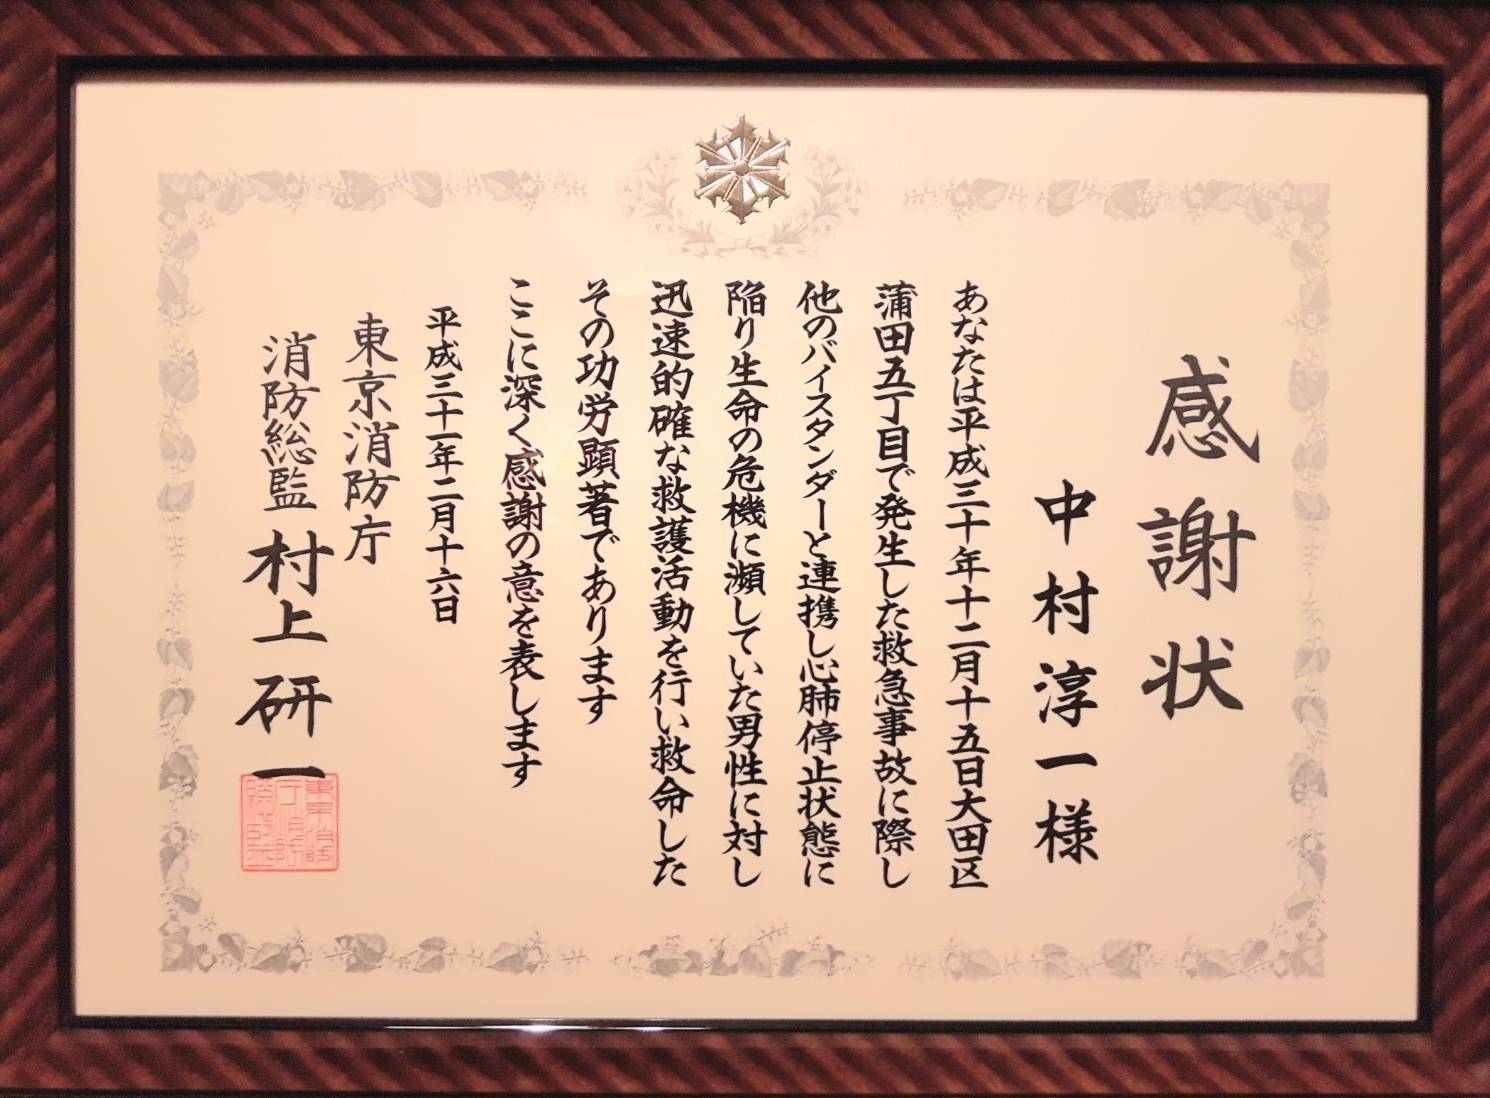 感謝状
中村淳一様
あなたは平成三十年十二月十五日大田区
蒲田五丁目で発生した救急事故に際し
他のバイスタンダーと連携し心肺停止状態に
陥り生命の危機に瀕していた男性に対し
迅速的確な救護活動を行い救命した
その功労顕著であります
ここに深く感謝の意を表します
平成三十一年二月十六日
東京消防庁
消防総監 村上研一
東京消防庁消防総監